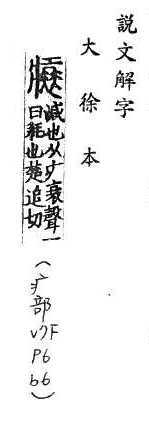 說文解字
大徐本
減也从疒衰聲一
曰耗也楚追切
(疒部